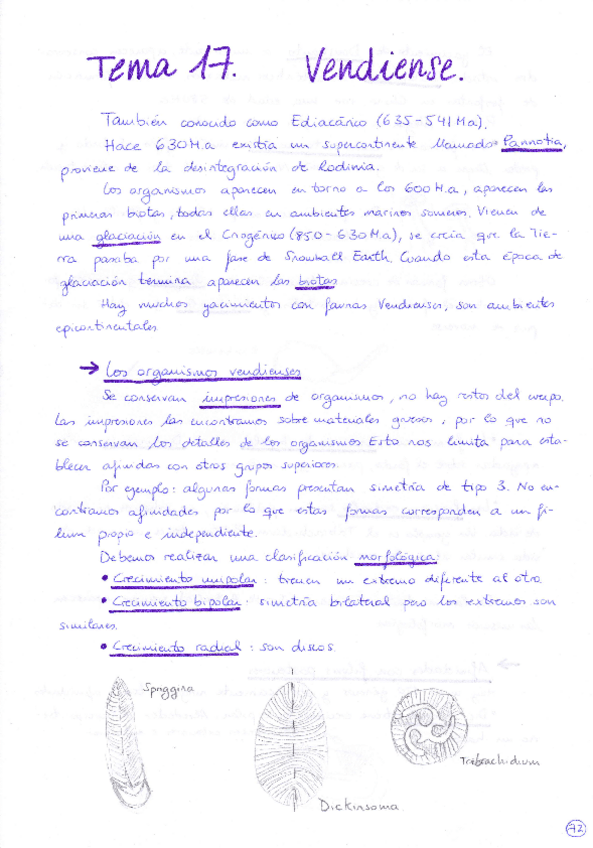 Tema 17. Vendiense.
También conocido como Ediacárico (635-541 Ma).
Hace 630 M.a existía un supercontinente llamado Pannotia,
proviene de la desintegración de Rodinia.
Los organismos aparecen en torno a los 600 M.a, aparecen las
primeras biotas, todas ellas en ambientes marinos someros. Vienen de
una glaciación en el Criogénico (850-630 M.a), se creía que la Tie-
rra pasaba por una fase de Snowball Earth. Cuando esta época de
glaciación termina aparecen las biotas
Hay muchos yacimientos con faunas Vendienses, son ambientes
epicontinentales
→ Los organismos vendienses
Se conservan impresiones de organismos, no hay restos del cuerpo.
Las impresiones las encontramos sobre materiales gruesos, por lo que no
se conservan los detalles de los organismos Esto nos limita para esta-
blecer afinidas con otros grupos superiores.
Por ejemplo: algunas formas presentan simetría de tipo 3. No en-
contramos afinidades por lo que estas formas corresponden a un fi-
lum propio e independiente.
Debemos realizar una clasificación morfológica:
• Crecimiento unipolar: tienen un extremo diferente al otro
• Crecimiento bipolar: simetría bilateral pero los extremos son
similares.
• Crecimiento radial: son discos.
Spriggina
Tribrachidium
Dickinsoma.
72